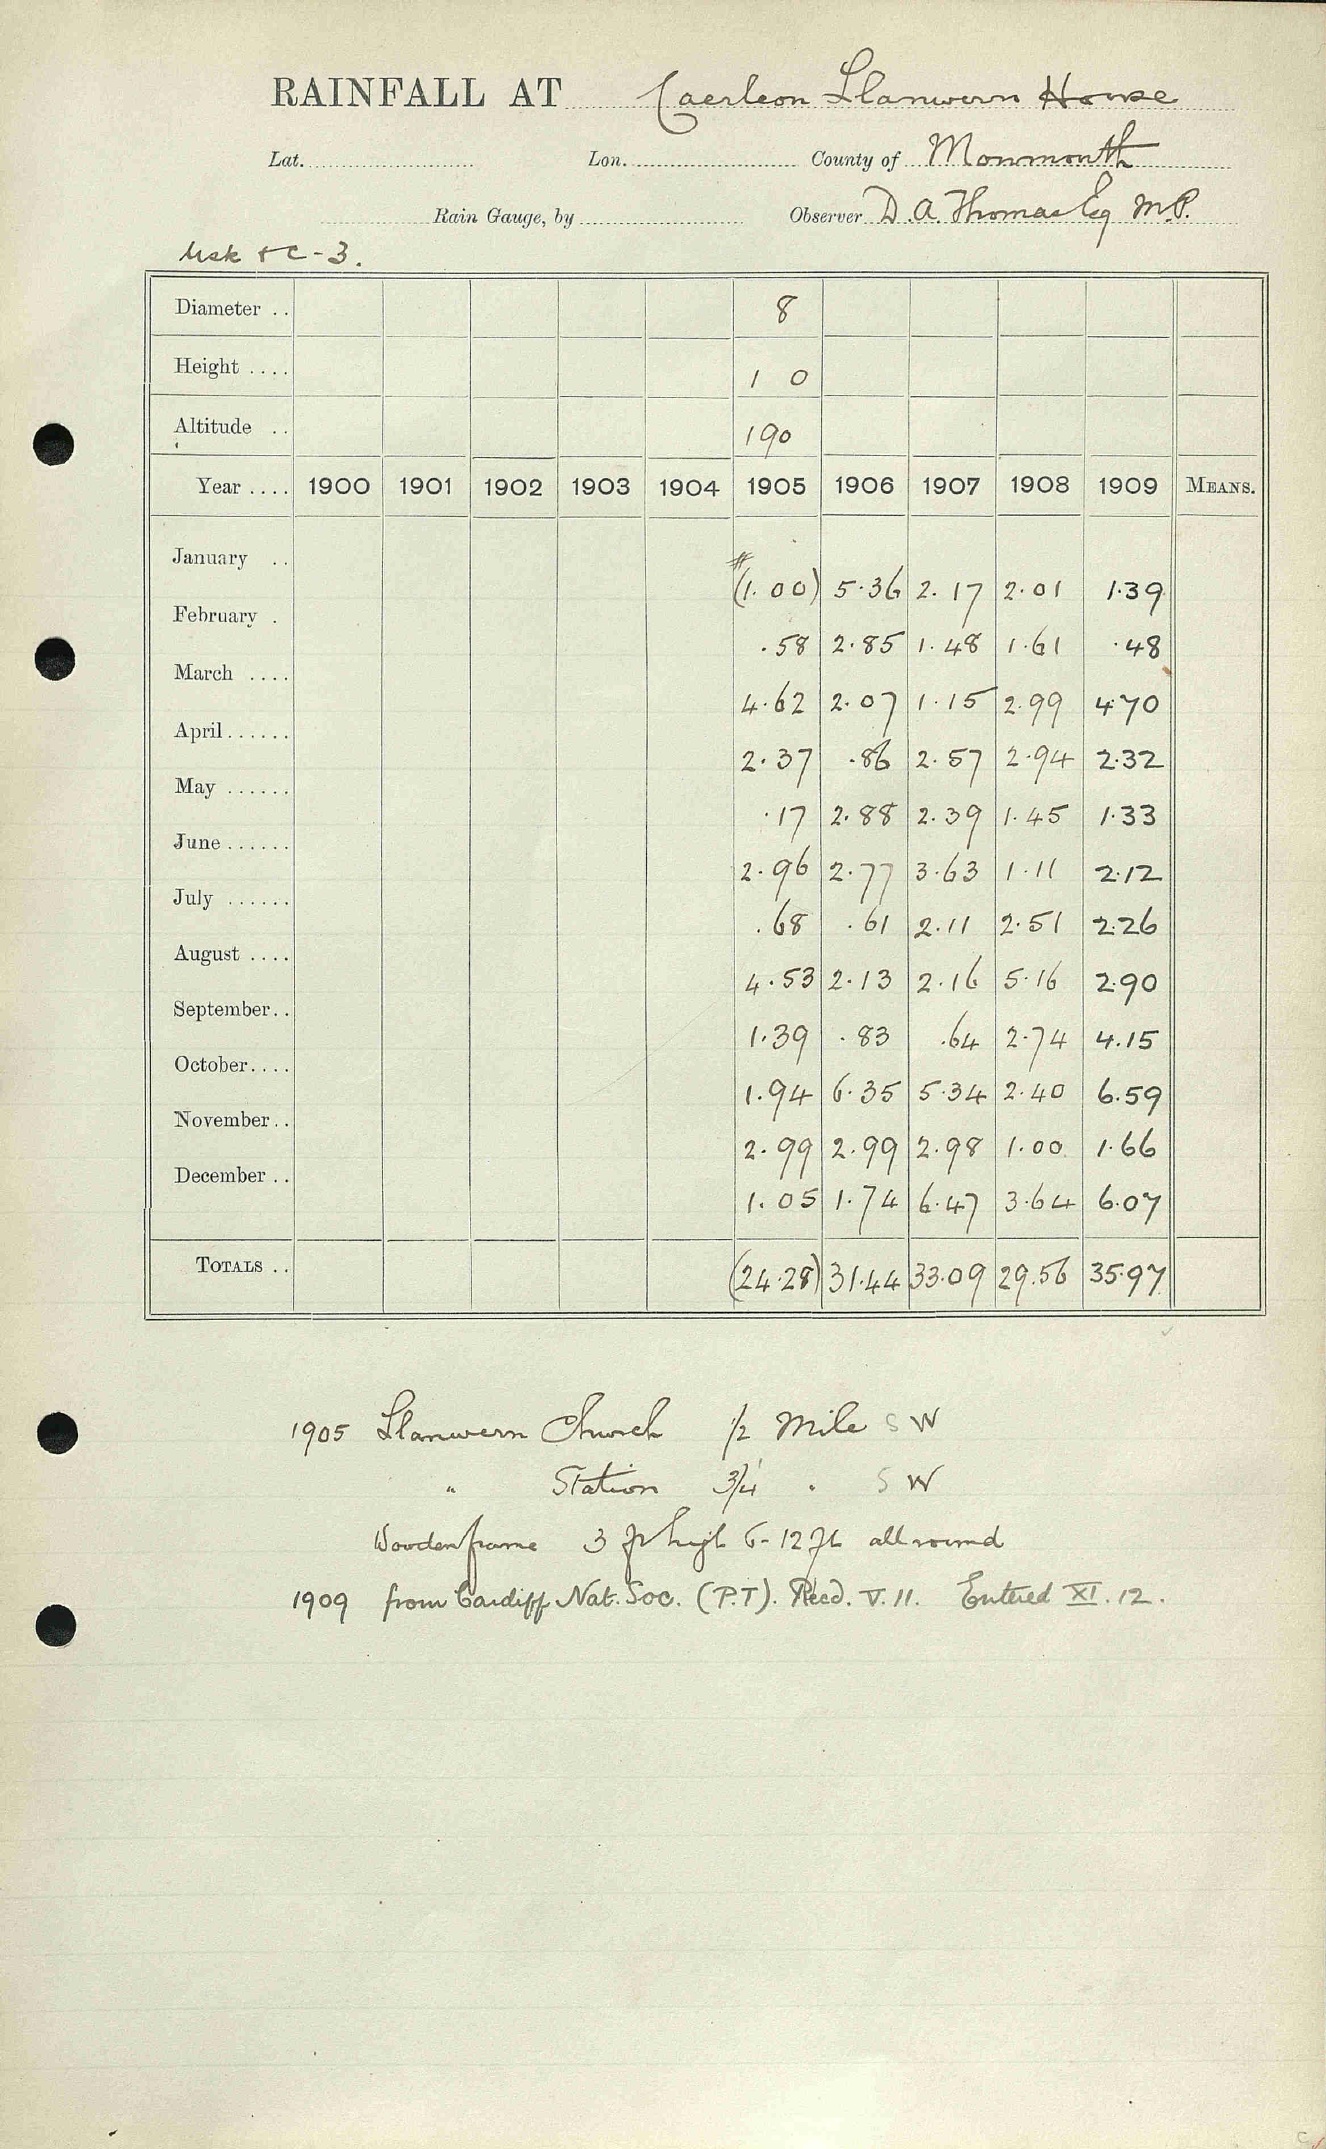 RAINFALL AT Caerleon Llanwern House
Lat. Lon. County of Monmouth
Rain Gauge, by Observer D. A. Thomas Esq M.P.
Usk &c - 3.
Diameter .. 8
Height .... 1 0
Altitude .. 190
Year .... 1900 1901 1902 1903 1904 1905 1906 1907 1908 1909 MEANS.
January .. #(1.00) 5.36 2.17 2.01 1.39
February . .58 2.85 1.48 1.61 .48
March .... 4.62 2.07 1.15 2.99 4.70
April...... 2.37 .86 2.57 2.94 2.32
May ...... .17 2.88 2.39 1.45 1.33
June...... 2.96 2.77 3.63 1.11 2.12
July ...... .68 .61 2.11 2.51 2.26
August .... 4.53 2.13 2.16 5.16 2.90
September.. 1.39 .83 .64 2.74 4.15
October.... 1.94 6.35 5.34 2.40 6.59
November.. 2.99 2.99 2.98 1.00 1.66
December .. 1.05 1.74 6.47 3.64 6.07
TOTALS .. (24.28) 31.44 33.09 29.56 35.97
1905 Llanwern Church 1/2 Mile S W
" Station 3/4 " S W
Wooden frame 3 ft high 6-12 ft all round
1909 from Cardiff Nat. Soc. (P.T). Recd. V. 11. Entered XI. 12.